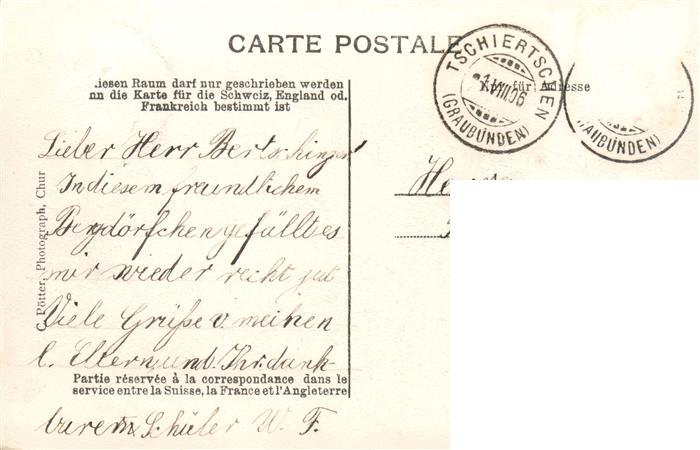 CARTE POSTALE
TSCHIERTSCHEN
1.VIII.06
(GRAUBÜNDEN)
AUBÜNDEN)
iesen Raum darf nur geschrieben werden
nn die Karte für die Schweiz, England od.
Frankreich bestimmt ist
für Adresse
Lieber Herr Bertschinger
In diesem freundlichem
Bergdörfchen gefällt es
mir wieder recht gut
Viele Grüße v. meinen
l. Eltern und Ihr. dank-
Partie réservée à la correspondance dans le
service entre la Suisse, la France et l'Angleterre
barem Schüler W. F.
C. Pötter, Photograph, Chur